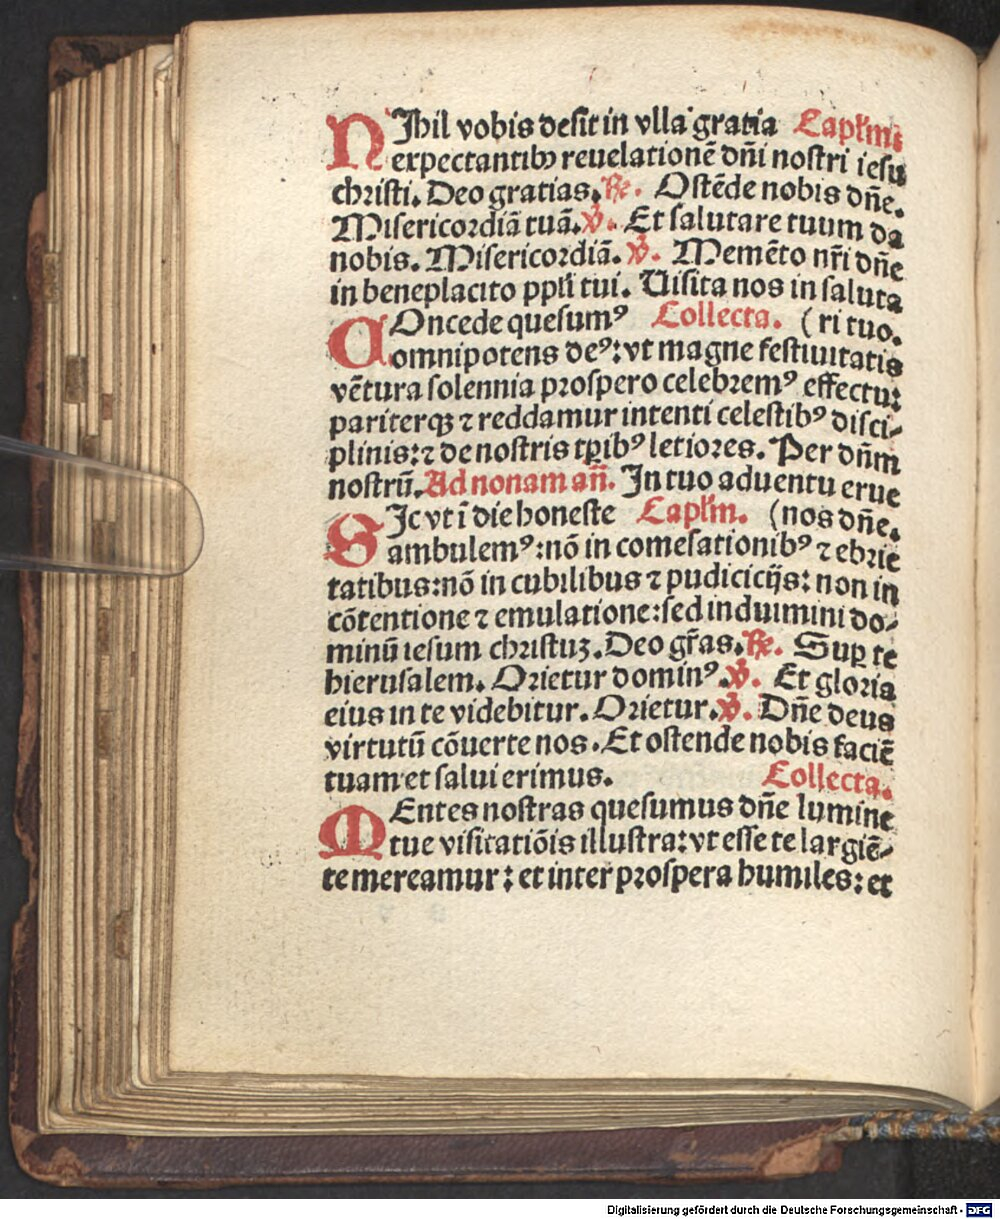 NIhil vobis desit in vlla gratia Capl'm:
expectantibꝰ reuelationē dñi nostri iesu
christi. Deo gratias. ℟. Ostēde nobis dñe.
Misericordiā tuā. ℣. Et salutare tuum da
nobis. Misericordiā. ℣. Memēto nr̄i dñe
in beneplacito ppl'i tui. Uisita nos in saluta
COncede quesumꝰ Collecta. (ri tuo.
omnipotens deꝰ: vt magne festiuitatis
vētura solennia prospero celebremꝰ effectu:
pariterqꝫ ⁊ reddamur intenti celestibꝰ disci⸗
plinis: ⁊ de nostris tꝑibꝰ letiores. Per dñm
nostrū. Ad nonam añ. In tuo aduentu erue
SIc vt ī die honeste Capl'm. (nos dñe.
ambulemꝰ: nō in comesationibꝰ ⁊ ebrie
tatibus: nō in cubilibus ⁊ pudicicijs: non in
cōtentione ⁊ emulatione: sed induimini do⸗
minū iesum christuꝫ. Deo gr̄as. ℟. Suꝑ te
hierusalem. Orietur dominꝰ. ℣. Et gloria
eius in te videbitur. Orietur. ℣. Dñe deus
virtutū cōuerte nos. Et ostende nobis faciē
tuam et salui erimus. Collecta.
MEntes nostras quesumus dñe lumine
tue visitatiōis illustra: vt esse te largiē⸗
te mereamur: et inter prospera humiles: et
Digitalisierung gefördert durch die Deutsche Forschungsgemeinschaft - DFG